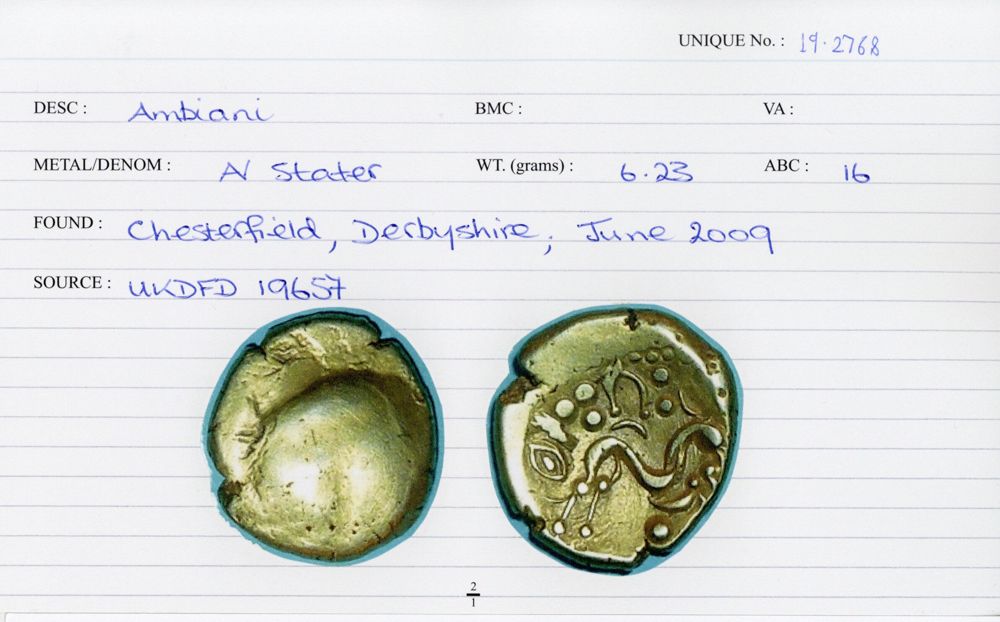 UNIQUE No. : 19.2768
DESC : Ambiani BMC : VA :
METAL/DENOM : AV Stater WT. (grams) : 6.23 ABC : 16
FOUND : Chesterfield, Derbyshire, June 2009
SOURCE : UKDFD 19657
2
1